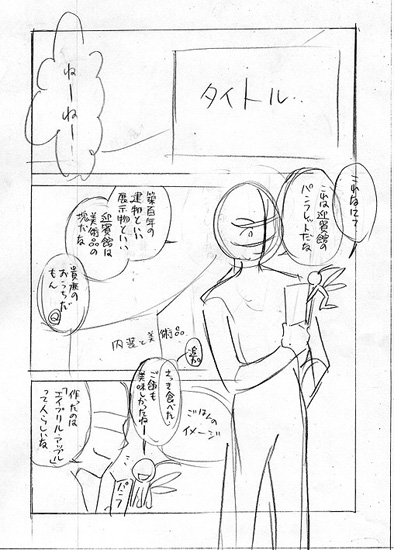 ねーねー
タイトル..
これなにて
これは迎賓館の
パンフレットだな
築百年の
建物といい
展示物といい
迎賓館は
美術品の
塊だな
貴族の
おうちだ
もん
内装と美術品
追加
さっき食べた
ご飯も
美味しかったねー
ごはんの
イメージ
作ったのは
「エイプリル・アップル」
って人らしいな
パンフ